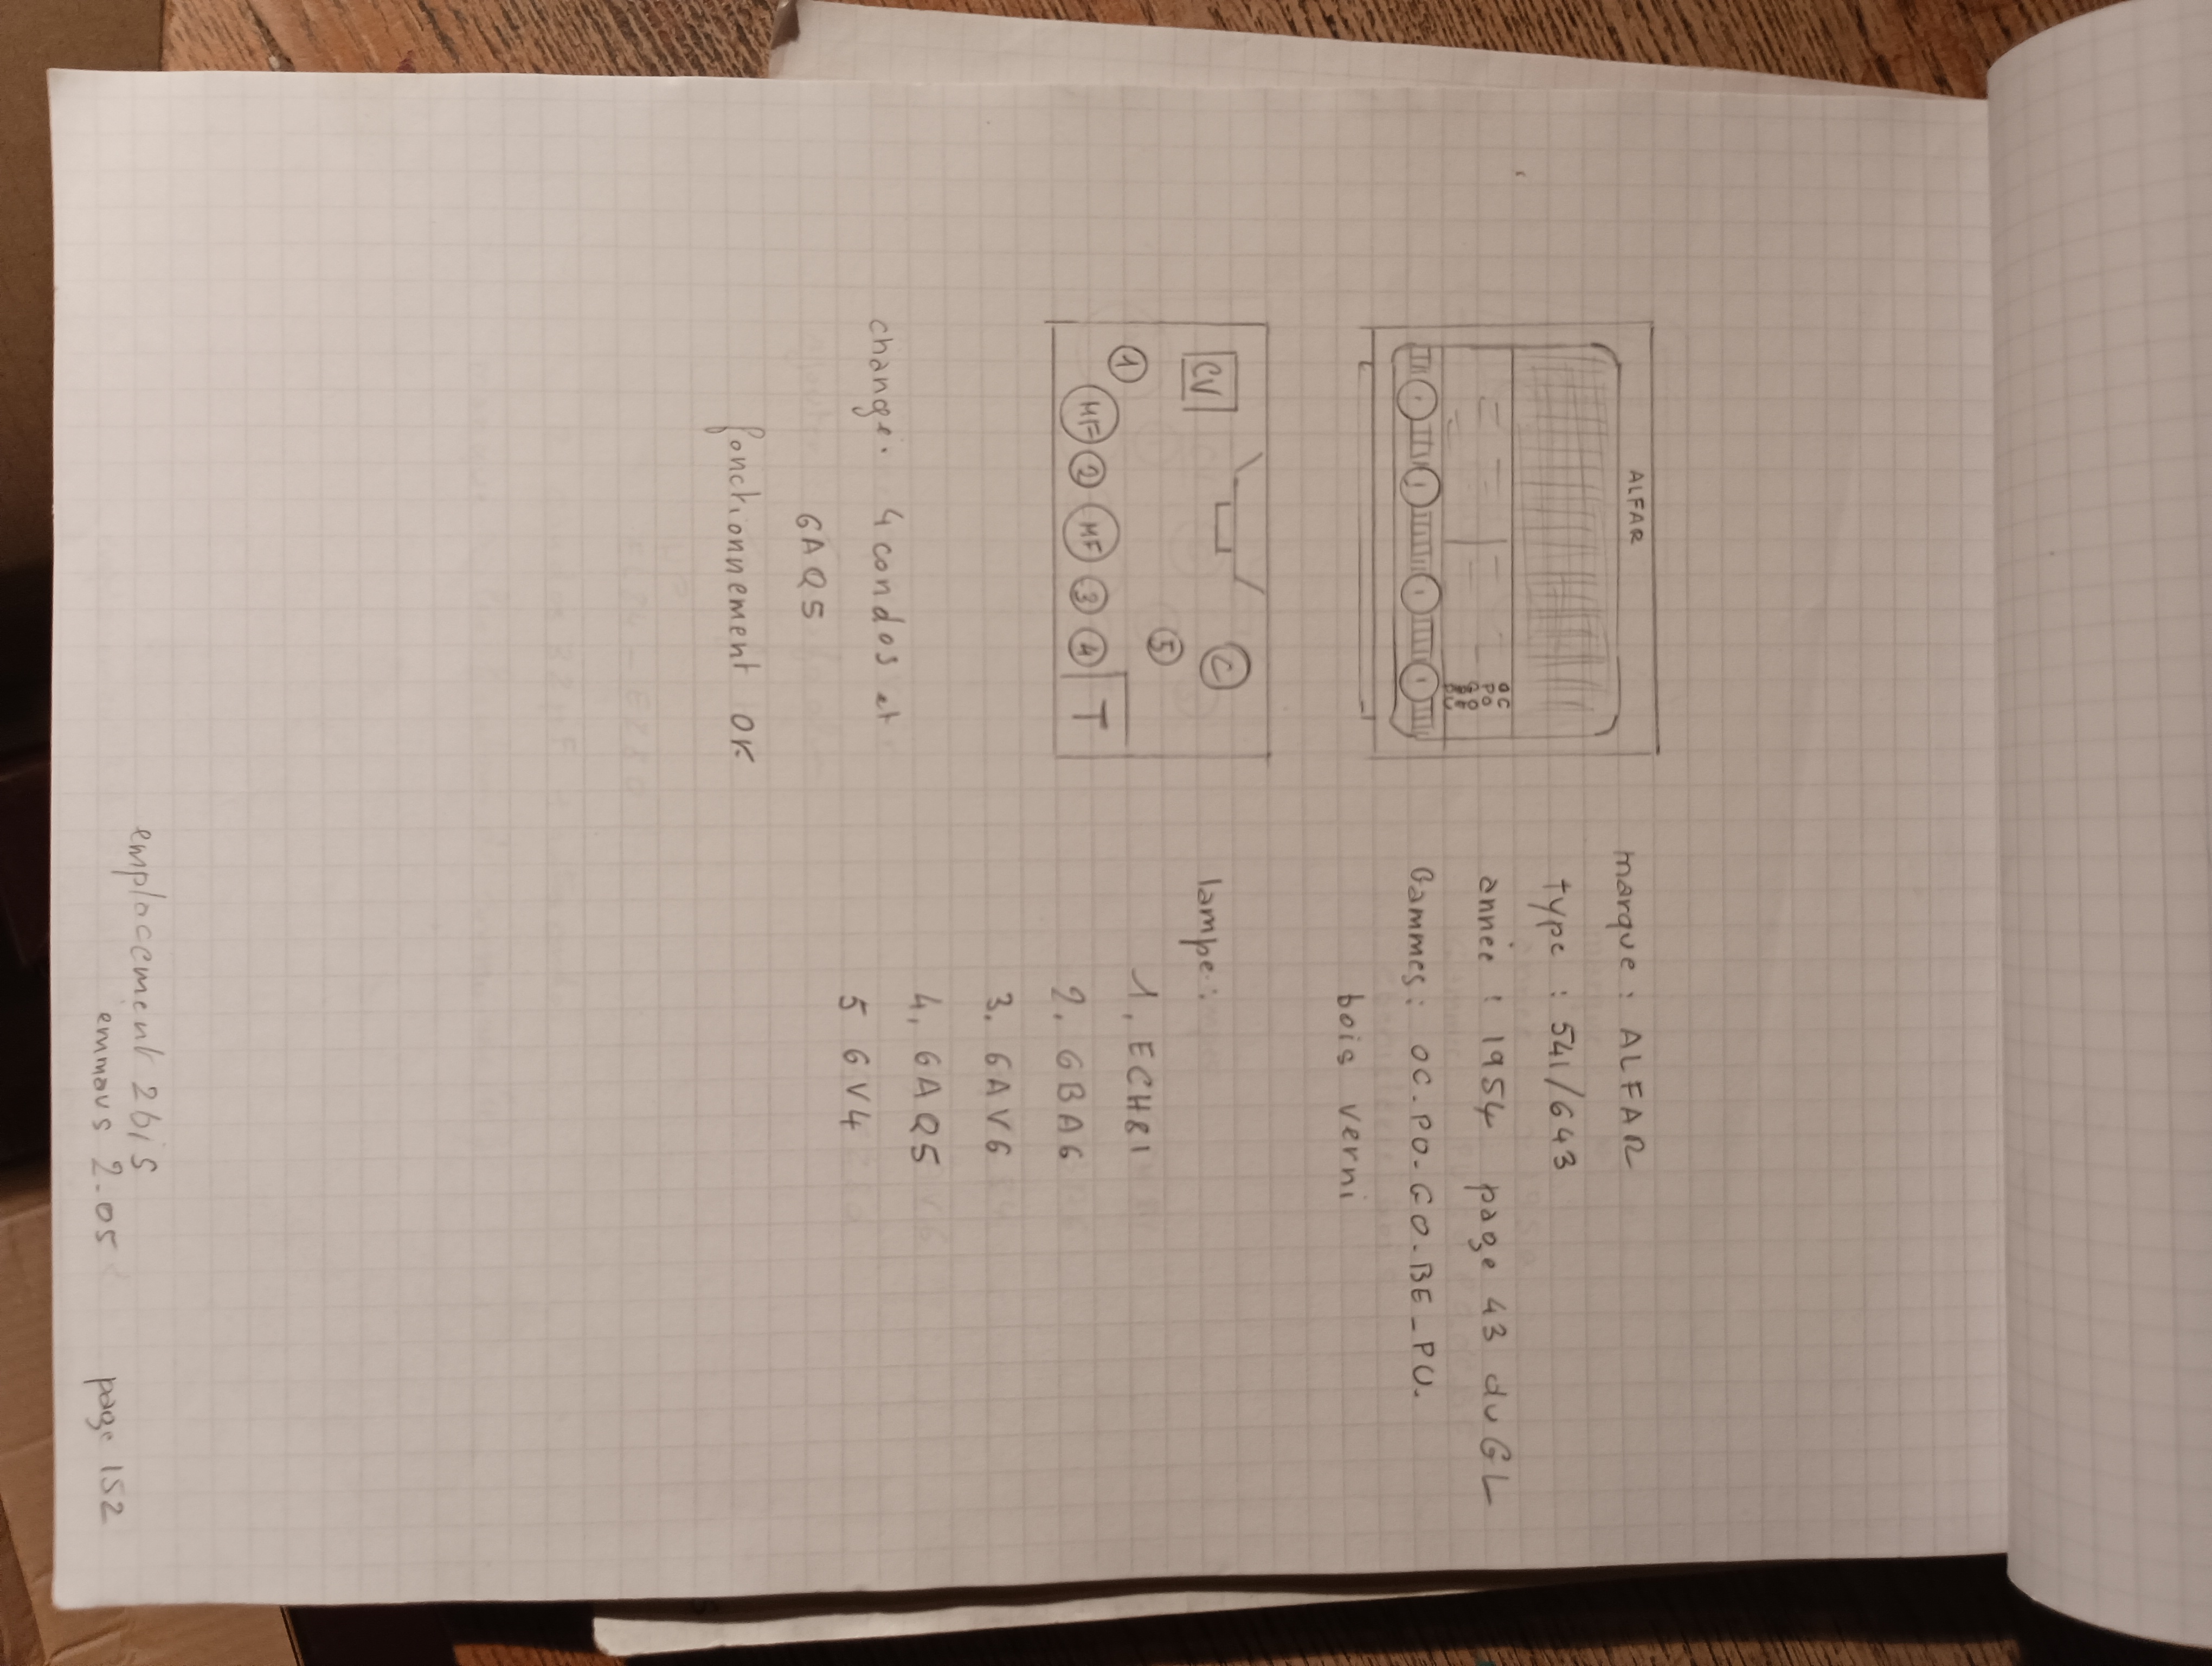 ALFAR
OC
PO
GO
BE
PU
marque : ALFAR
type : 541/643
année : 1954 page 43 du GL
Gammes : OC.PO-GO.BE-PU.
bois verni
CV
C
5
1
MF 2 MF 3 4 T
lampe :
1. ECH81
2. 6BA6
3. 6AV6
4. 6AQ5
5 6V4
change. 4 condos et
6AQ5
fonctionnement OK
emplacement 2bis
emmaus 2.05
page 152